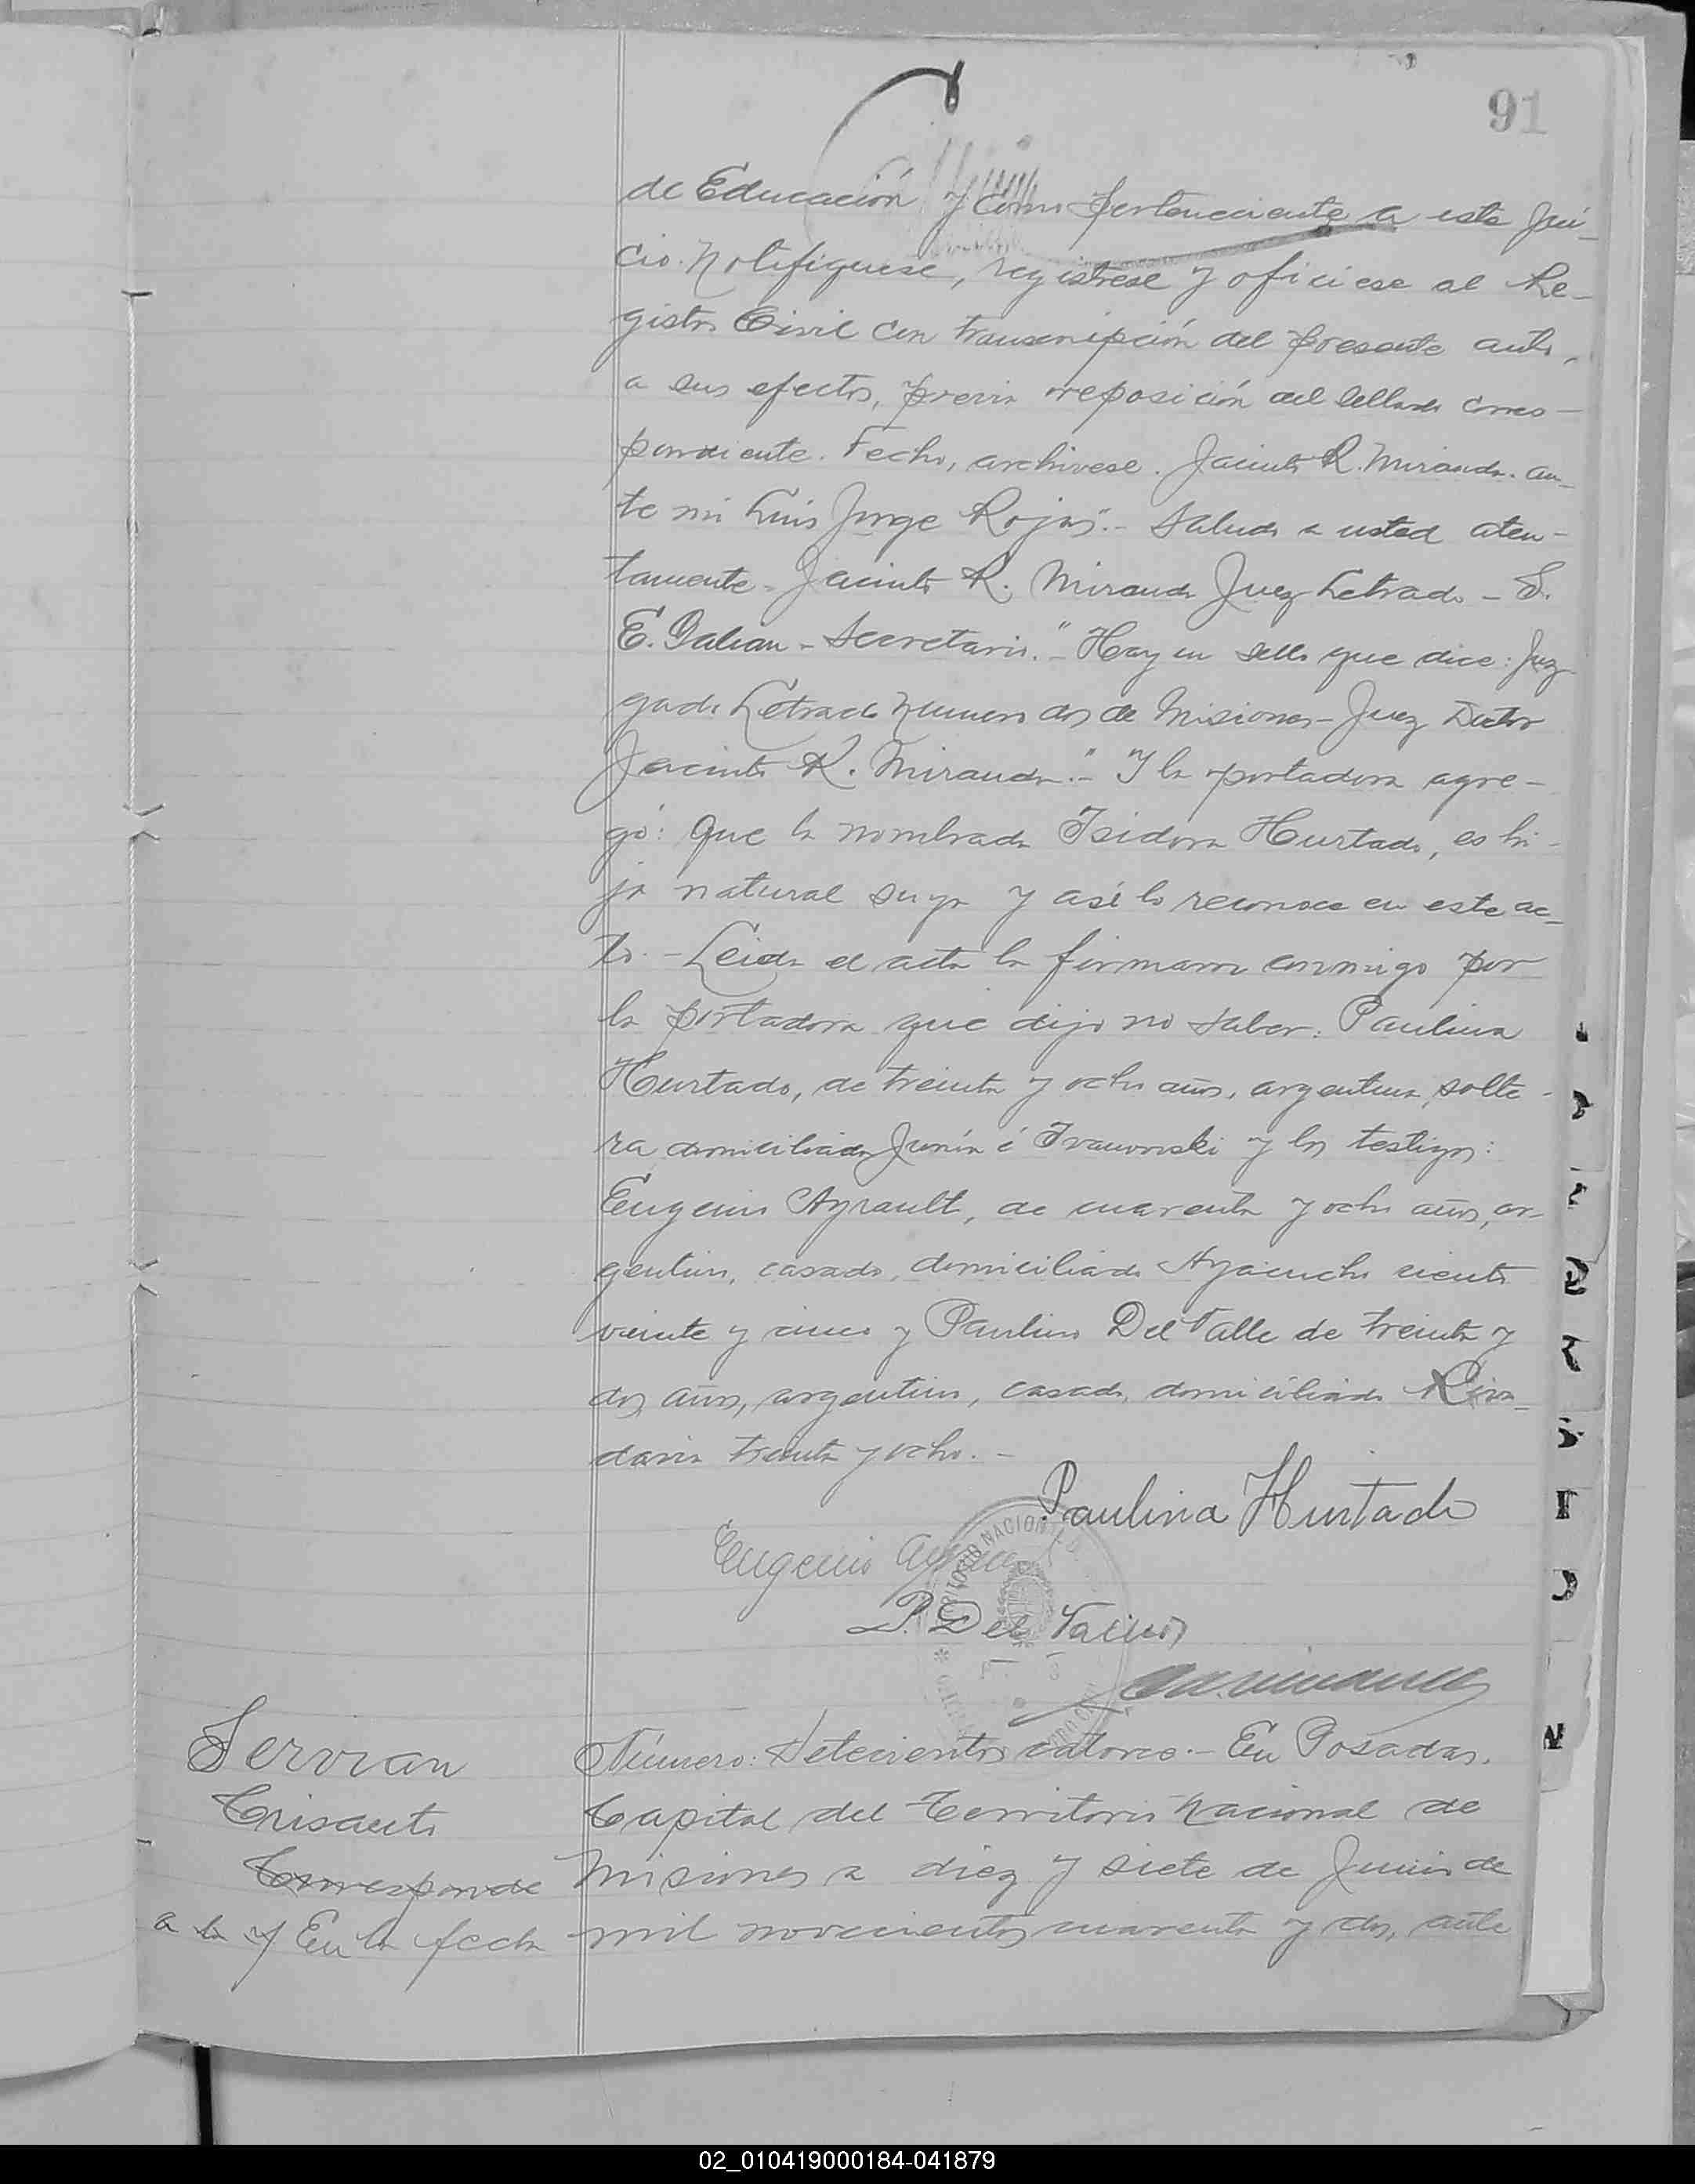 91
de Educación y como perteneciente a este jui-
cio. Notifíquese, regístrese y ofíciese al Re-
gistro Civil con transcripción del presente auto,
a sus efectos, previa reposición del sellado corres-
pondiente. Fecho, archívese. Jacinto R. Miranda. an-
te mi Luis Jorge Rojas".- Saluda a usted aten-
tamente. Jacinto R. Miranda Juez Letrado - S.
E. Galian - Secretario." - Hay un sello que dice: Juz
gado Letrado Número dos de Misiones - Juez Doctor
Jacinto R. Miranda." - Y la portadora agre-
gó: Que la nombrada Isidora Hurtado, es hi-
ja natural suya y así lo reconoce en este ac-
to. - Leida el acta la firmaron conmigo por
la portadora que dijo no saber: Paulina
Hurtado, de treinta y ocho años, argentina, solte-
ra, domiciliada Junín é Ivanowski y los testigos:
Eugenio Ayrault, de cuarenta y ocho años, ar-
gentino, casado, domiciliado Ayacucho ciento
veinte y cinco y Paulino Del Valle de treinta y
dos años, argentino, casado, domiciliado Riva-
davia treinta y ocho. -
Paulina Hurtado
Eugenio
P. Del Valle
Servian
Crisanto
Corresponde
a la y En la fecha
Número: Setecientos catorce. - En Posadas,
Capital del Territorio Nacional de
Misiones a diez y siete de Junio de
mil novecientos cuarenta y dos, ante
02_010419000184-041879